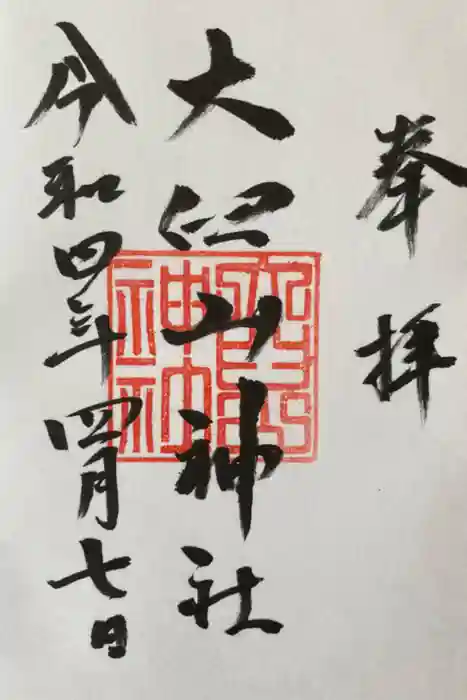 奉拝
大仁山神社
令和四年四月七日